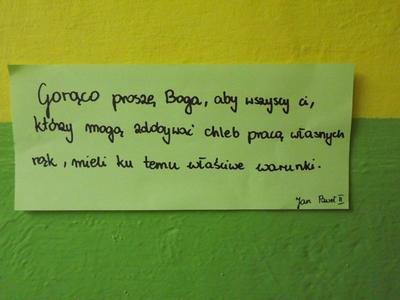 Gorąco proszę Boga, aby wszyscy ci,
którzy mogą zdobywać chleb pracą własnych
rąk, mieli ku temu właściwe warunki.
Jan Paweł II